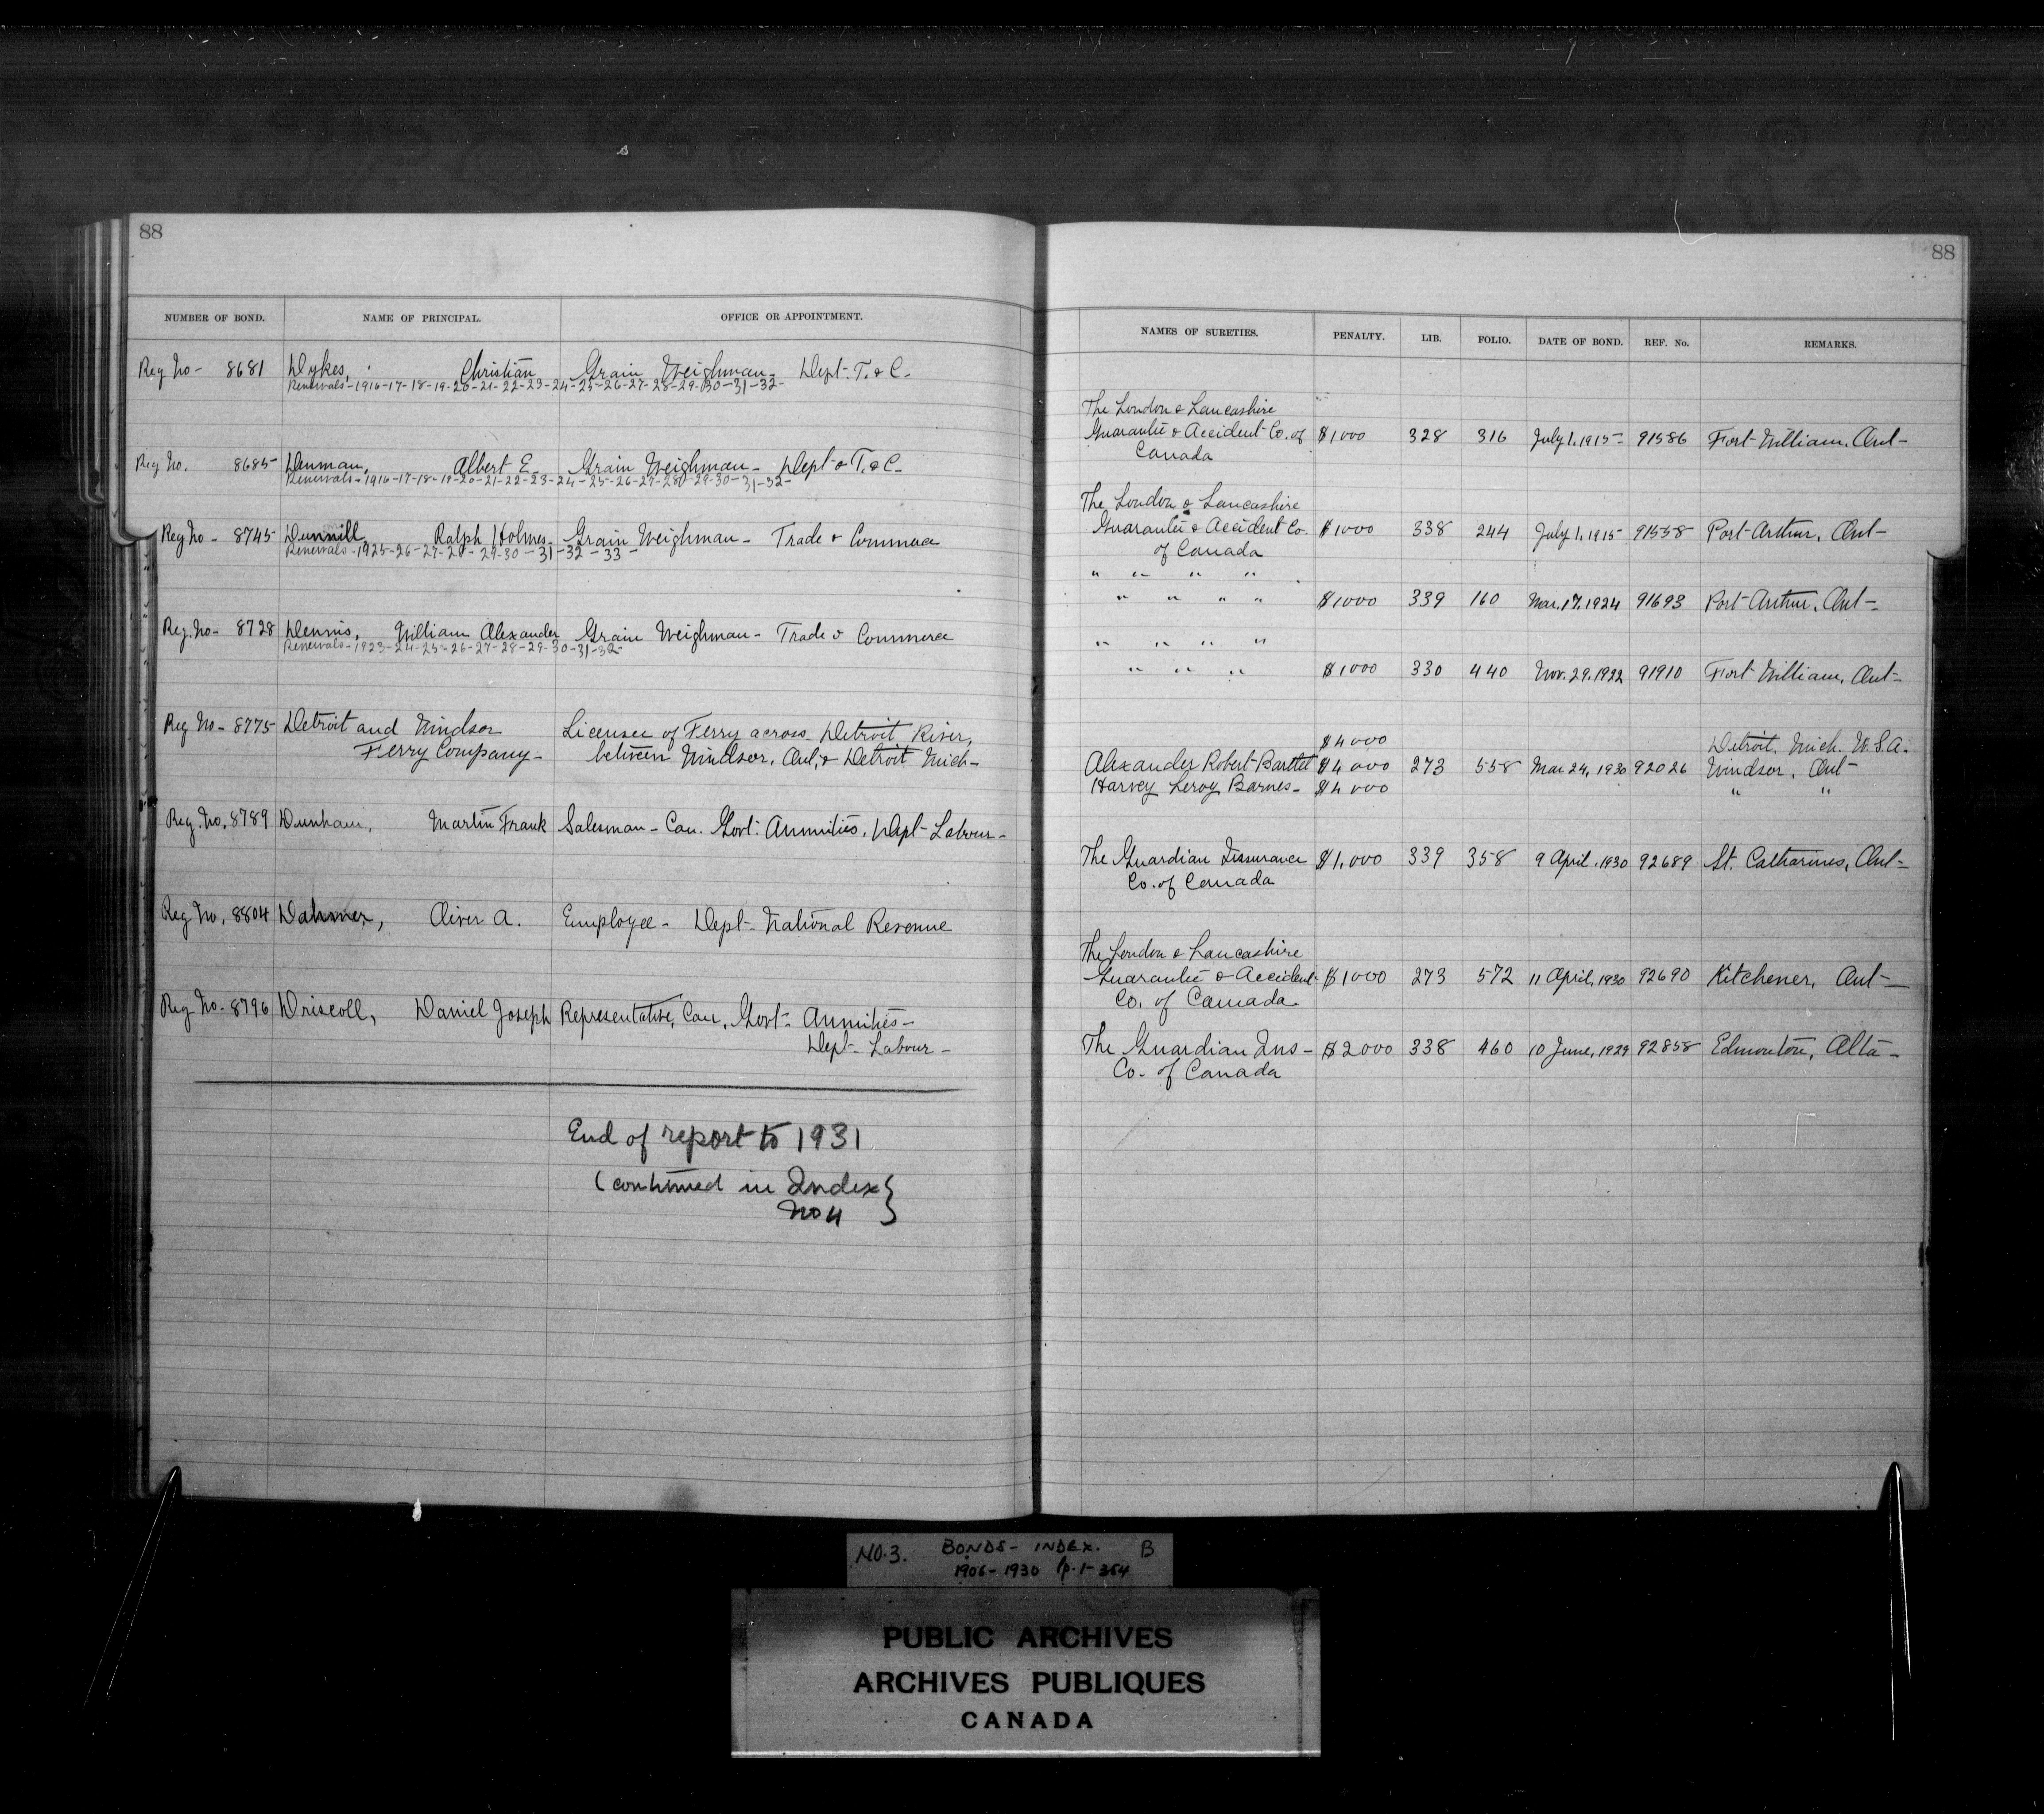 88
NUMBER OF BOND. NAME OF PRINCIPAL. OFFICE OR APPOINTMENT.
Reg No - 8681 Dykes, Christian Grain Weighman - Dept. T. & C.
Renewals - 1916-17-18-19-20-21-22-23-24-25-26-27-28-29-30-31-32-
Reg No. 8685 Denman, Albert E. Grain Weighman - Dept of T. & C.
Renewals - 1916-17-18-19-20-21-22-23-24-25-26-27-28-29-30-31-32-
Reg No - 8745 Dunnill, Ralph Holmes - Grain Weighman - Trade & Commerce
Renewals - 1925-26-27-28-29-30-31-32-33-
Reg. No - 8728 Dennis, William Alexander Grain Weighman - Trade & Commerce
Renewals - 1923-24-25-26-27-28-29-30-31-32-
Reg No - 8775 Detroit and Windsor Licensee of Ferry across Detroit River,
Ferry Company - between Windsor, Ont, & Detroit Mich -
Reg. No. 8789 Dunham, Martin Frank Salesman - Can. Govt. Annuities, Dept Labour -
Reg No. 8804 Dahmer, Oliver A. Employee - Dept - National Revenue
Reg No. 8796 Driscoll, Daniel Joseph Representative, Can. Govt - Annuities -
Dept - Labour -
End of report to 1931
(continued in Index }
No 4
88
NAMES OF SURETIES. PENALTY. LIB. FOLIO. DATE OF BOND. REF. No. REMARKS.
The London & Lancashire
Guarantee & Accident Co. of $1000 328 316 July 1, 1915 - 91586 Fort William, Ont -
Canada
The London & Lancashire
Guarantee & Accident Co. $1000 338 244 July 1, 1915 91558 Port Arthur, Ont -
of Canada
" " " "
" " " " $1000 339 160 Mar. 17, 1924 91693 Port Arthur, Ont -
" " " "
" " " $1000 330 440 Nov. 29, 1922 91910 Fort William, Ont -
$4000 Detroit, Mich. U.S.A.
Alexander Robert Bartlet $4000 273 558 Mar 24, 1930 92026 Windsor, Ont -
Harvey Leroy Barnes - $4000 " "
The Guardian Insurance $1,000 339 358 9 April, 1930 92689 St. Catharines, Ont -
Co. of Canada
The London & Lancashire
Guarantee & Accident $1000 273 572 11 April, 1930 92690 Kitchener, Ont -
Co. of Canada
The Guardian Ins - $2000 338 460 10 June, 1929 92858 Edmonton, Alta -
Co. of Canada
NO. 3. BONDS - INDEX. B
1906 - 1930 p. 1 - 364
PUBLIC ARCHIVES
ARCHIVES PUBLIQUES
CANADA